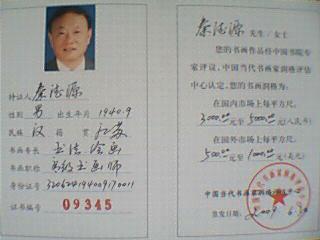 持证人 秦德源
性别 男 出生年月 1940.9
民族 汉 籍贯 江苏
书画专长 书法 绘画
书画职称 高级书画师
身份证号 320624194009170011
证书编号 09345
秦德源 先生/女士
您的书画作品经中国书院专
家评议,中国当代书画家润格评估
中心认定,您的书画润格为:
在国内市场上每平方尺:
3000.00元至5000.00元(人民币)
在国外市场上每平方尺:
500.00元至1000.00元(美元)
中国当代书画家润格评估中心
签发日期: 2009 6.30